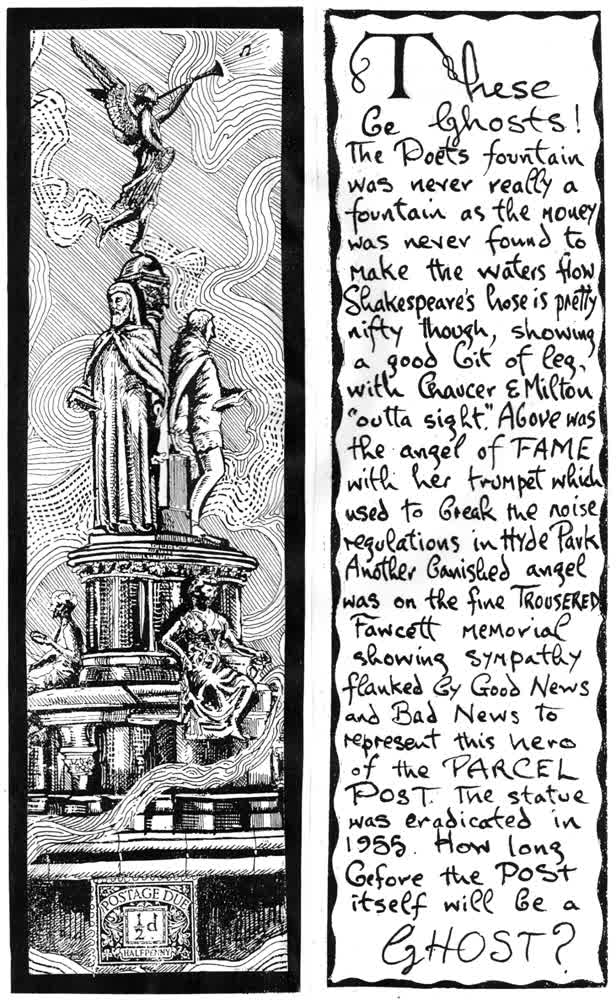 POSTAGE DUE
½d
HALFPENNY
These
be Ghosts!
The Poets fountain
was never really a
fountain as the money
was never found to
make the waters flow
Shakespeare's hose is pretty
nifty though, showing
a good bit of leg,
with Chaucer & Milton
"outta sight". Above was
the angel of FAME
with her trumpet which
used to break the noise
regulations in Hyde Park
Another banished angel
was on the fine TROUSERED
Fawcett Memorial
showing sympathy
flanked by Good News
and Bad News to
represent this hero
of the PARCEL
POST. The statue
was eradicated in
1955. How long
before the POST
itself will be a
GHOST?